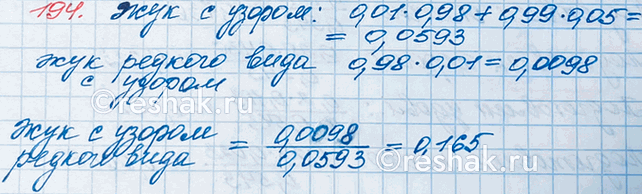 194. Жук с узором: 0,01·0,98+0,99·0,05=
= 0,0593
жук редкого вида 0,98·0,01=0,0098
с узором
Жук с узором
редкого вида = 0,0098 / 0,0593 = 0,165
©reshak.ru
©reshak.ru